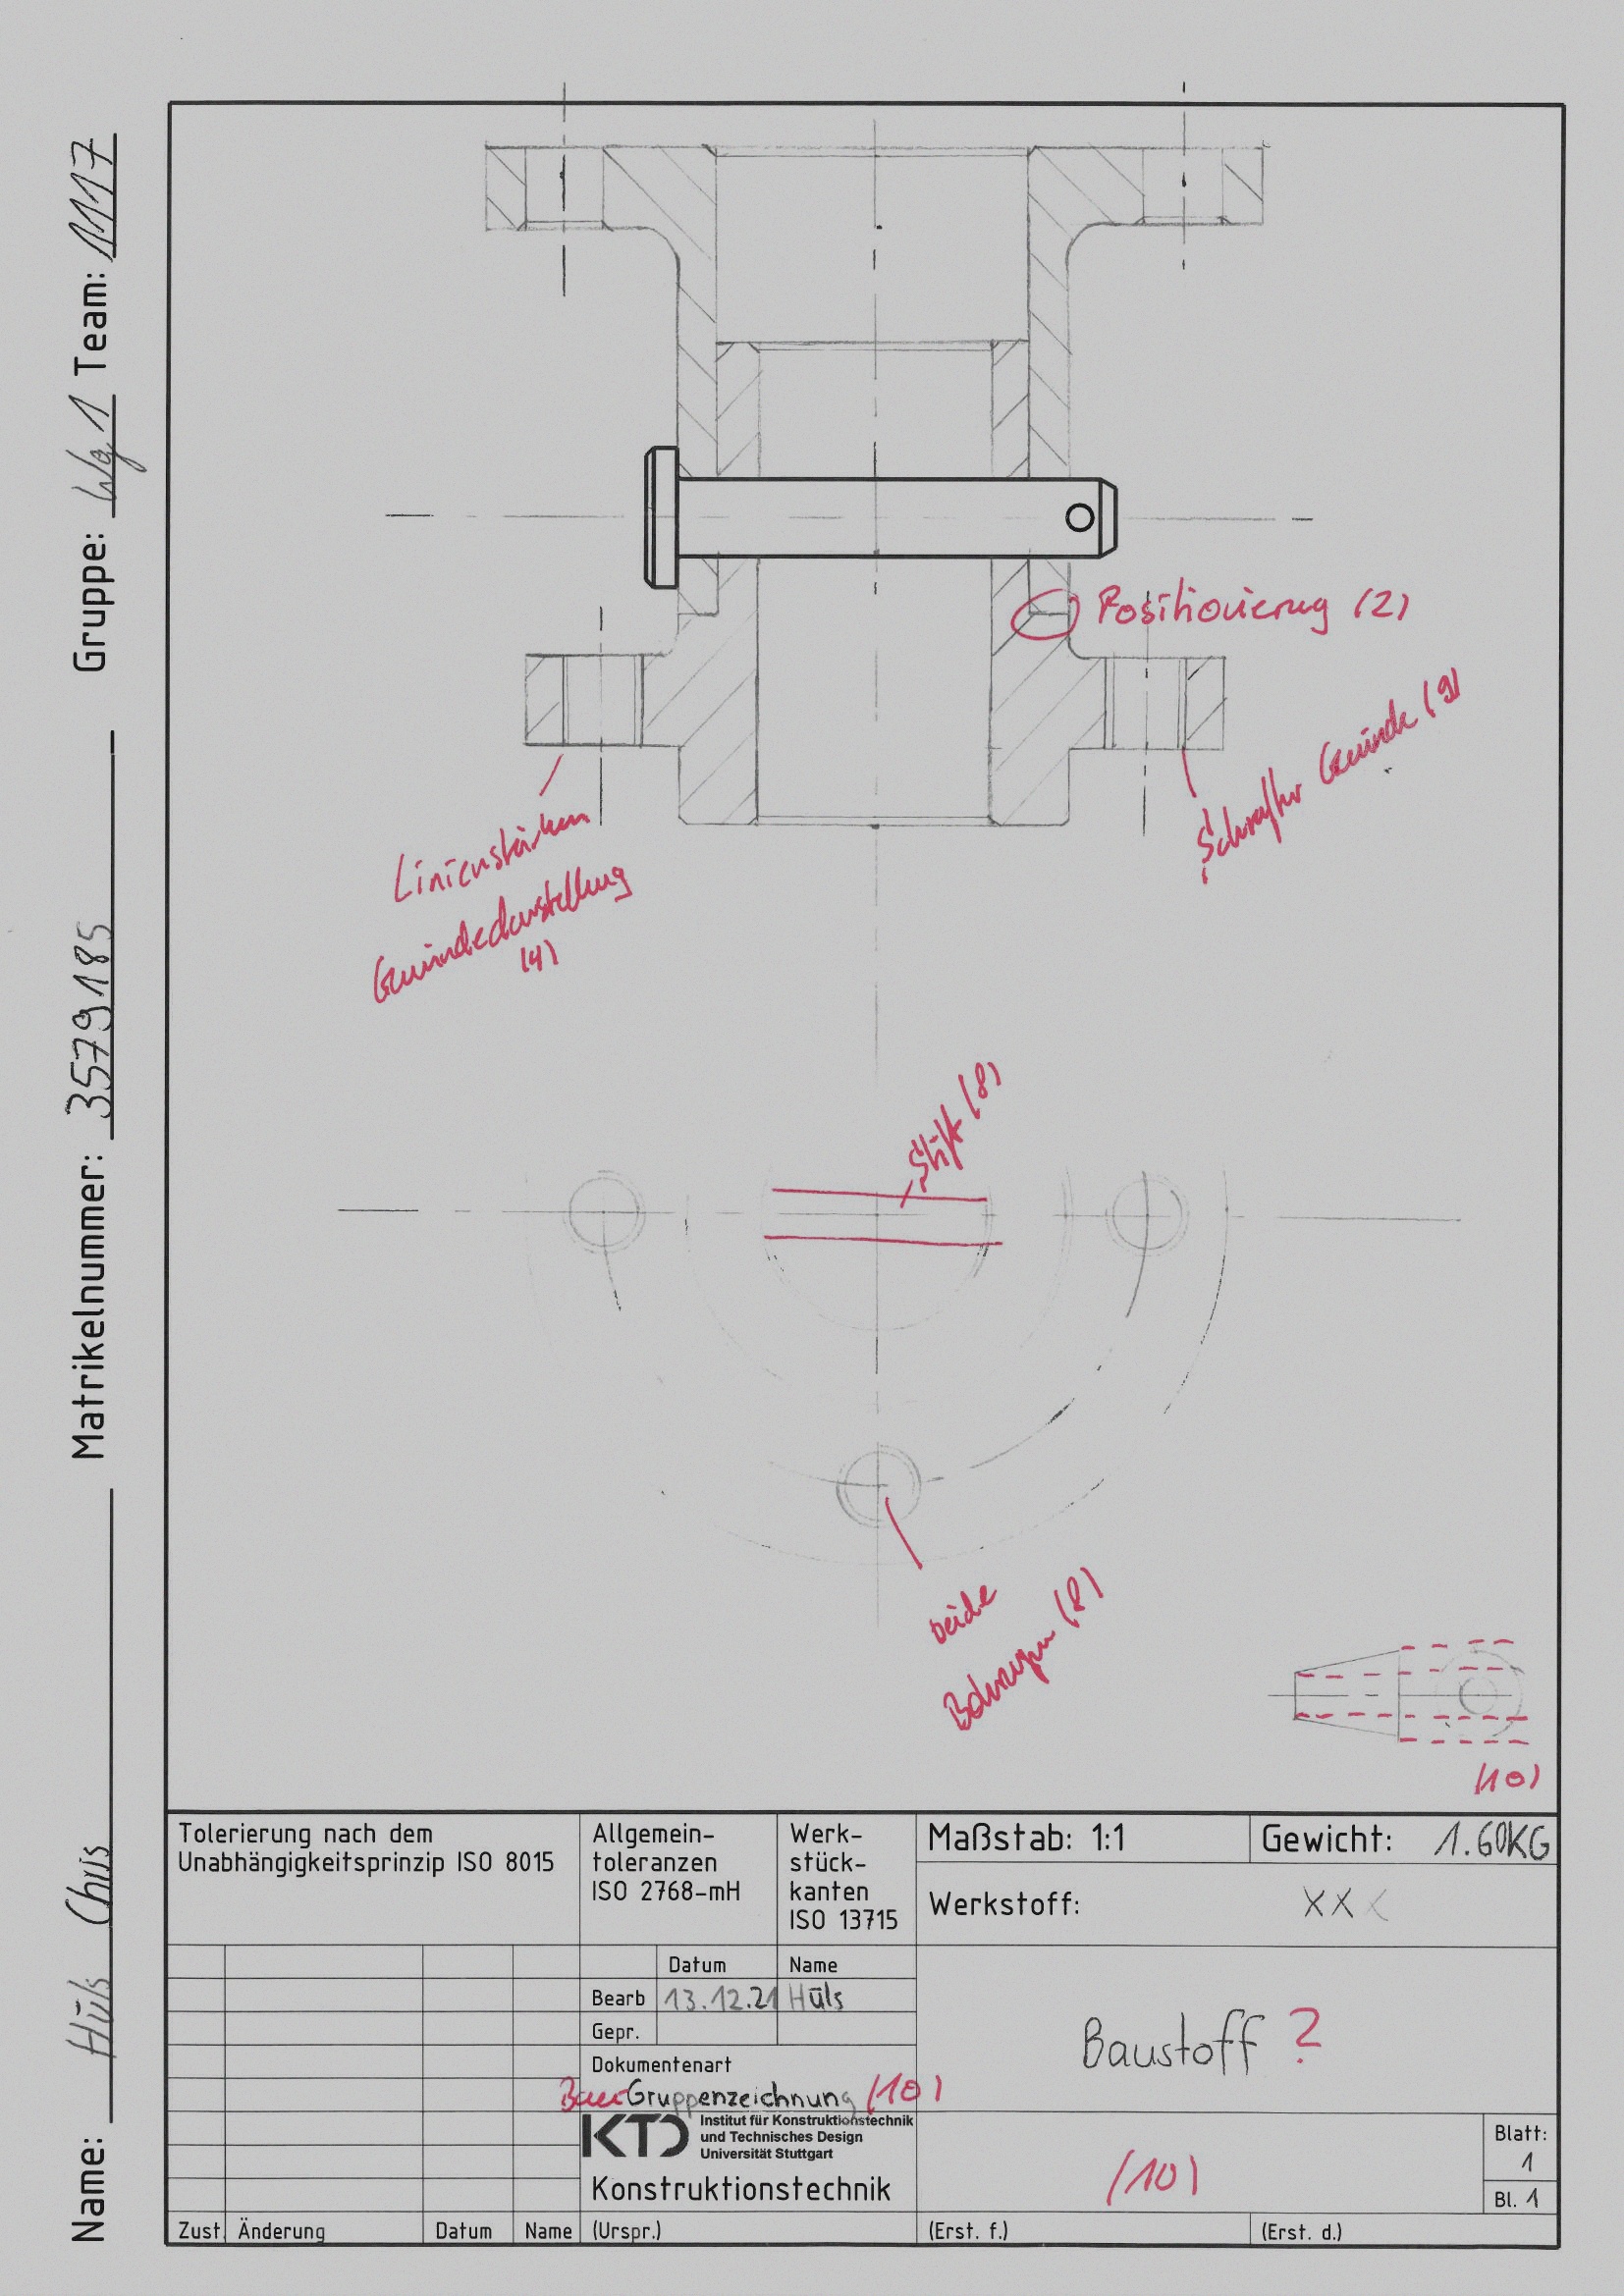 Name: Hüls Chris Matrikelnummer: 3579185 Gruppe: Wg 1 Team: 1117
Positionierung (2)
Schraffur Gewinde (9)
Linienstärken
Gewindedarstellung
(4)
Stift (8)
beide
Bohrungen (8)
(10)
Tolerierung nach dem
Unabhängigkeitsprinzip ISO 8015
Allgemein-
toleranzen
ISO 2768-mH
Werk-
stück-
kanten
ISO 13715
Maßstab: 1:1
Gewicht: 1.60KG
Werkstoff: XXX
Datum Name
Bearb 13.12.21 Hüls
Gepr.
Baustoff ?
Dokumentenart
Gruppenzeichnung (10)
KTD
Institut für Konstruktionstechnik
und Technisches Design
Universität Stuttgart
Konstruktionstechnik
(10)
Blatt:
1
Bl. 1
Zust. Änderung Datum Name (Urspr.) (Erst. f.) (Erst. d.)